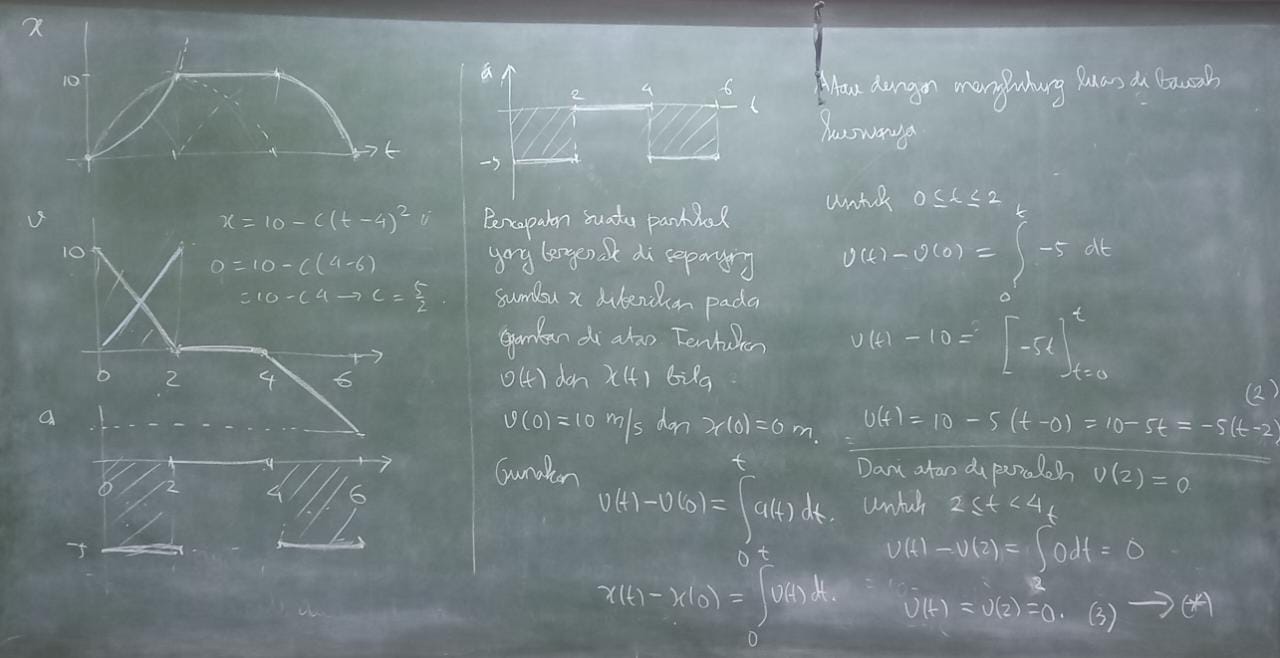 x
10
t
v
x = 10 - c(t-4)²
10
0 = 10 - c(4-6)
= 10 - c4 → c = 5/2
0 2 4 6
a
0 2 4 6
-5
a
2 4 6 t
-5
Percepatan suatu partikel
yang bergerak di sepanjang
sumbu x diberikan pada
gambar di atas Tentukan
v(t) dan x(t) bila
v(0) = 10 m/s dan x(0) = 0 m.
Gunakan
v(t) - v(0) = ∫₀ᵗ a(t) dt.
x(t) - x(0) = ∫₀ᵗ v(t) dt.
Atau dengan menghitung luas di bawah
kurvanya.
untuk 0 ≤ t ≤ 2
v(t) - v(0) = ∫₀ᵗ -5 dt
v(t) - 10 = [-5t]ᵗₜ₌₀
(2)
v(t) = 10 - 5(t-0) = 10 - 5t = -5(t-2)
Dari atas diperoleh v(2) = 0
untuk 2 ≤ t < 4
v(t) - v(2) = ∫₂ᵗ 0 dt = 0
v(t) = v(2) = 0. (3) → (*)